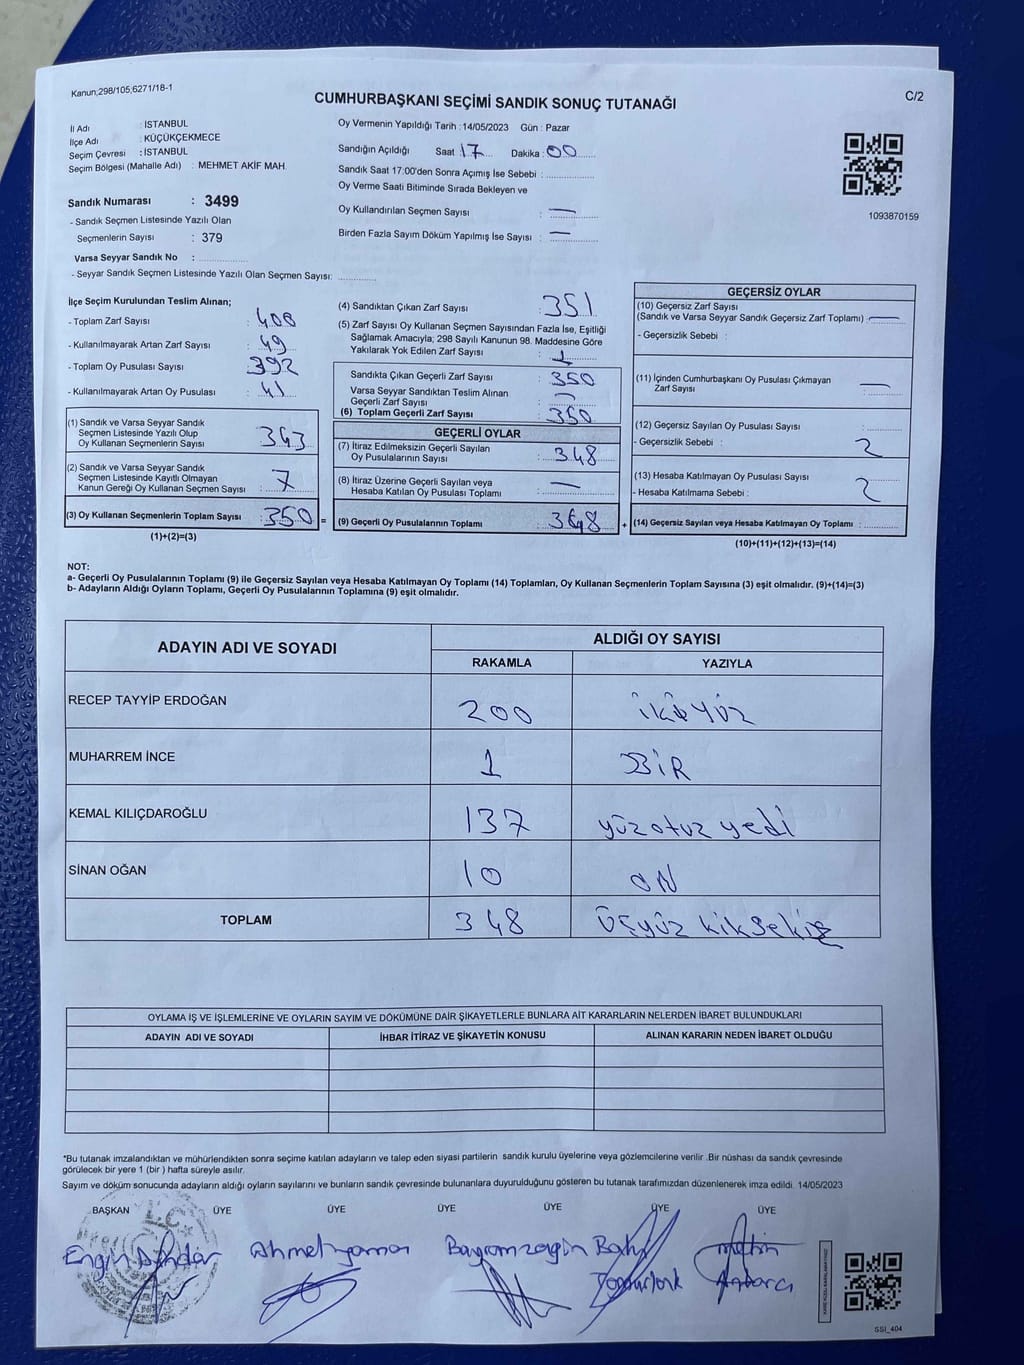 Kanun;298/105;6271/18-1
C/2
CUMHURBAŞKANI SEÇİMİ SANDIK SONUÇ TUTANAĞI
İl Adı : İSTANBUL
İlçe Adı : KÜÇÜKÇEKMECE
Seçim Çevresi : İSTANBUL
Seçim Bölgesi (Mahalle Adı) : MEHMET AKİF MAH.
Oy Vermenin Yapıldığı Tarih : 14/05/2023 Gün : Pazar
Sandığın Açıldığı Saat 17 Dakika : 00
Sandık Saat 17:00'den Sonra Açımış İse Sebebi :
Oy Verme Saati Bitiminde Sırada Bekleyen ve
Oy Kullandırılan Seçmen Sayısı : —
Birden Fazla Sayım Döküm Yapılmış İse Sayısı : —
1093870159
Sandık Numarası : 3499
- Sandık Seçmen Listesinde Yazılı Olan
Seçmenlerin Sayısı : 379
Varsa Seyyar Sandık No :
- Seyyar Sandık Seçmen Listesinde Yazılı Olan Seçmen Sayısı:
İlçe Seçim Kurulundan Teslim Alınan;
- Toplam Zarf Sayısı : 400
- Kullanılmayarak Artan Zarf Sayısı : 49
- Toplam Oy Pusulası Sayısı : 392
- Kullanılmayarak Artan Oy Pusulası : 41
(1) Sandık ve Varsa Seyyar Sandık
Seçmen Listesinde Yazılı Olup
Oy Kullanan Seçmenlerin Sayısı : 343
(2) Sandık ve Varsa Seyyar Sandık
Seçmen Listesinde Kayıtlı Olmayan
Kanun Gereği Oy Kullanan Seçmen Sayısı : 7
(3) Oy Kullanan Seçmenlerin Toplam Sayısı : 350 =
(1)+(2)=(3)
(4) Sandıktan Çıkan Zarf Sayısı : 351
(5) Zarf Sayısı Oy Kullanan Seçmen Sayısından Fazla İse, Eşitliği
Sağlamak Amacıyla; 298 Sayılı Kanunun 98. Maddesine Göre
Yakılarak Yok Edilen Zarf Sayısı : 1
Sandıkta Çıkan Geçerli Zarf Sayısı : 350
Varsa Seyyar Sandıktan Teslim Alınan
Geçerli Zarf Sayısı : —
(6) Toplam Geçerli Zarf Sayısı : 350
GEÇERLİ OYLAR
(7) İtiraz Edilmeksizin Geçerli Sayılan
Oy Pusulalarının Sayısı : 348
(8) İtiraz Üzerine Geçerli Sayılan veya
Hesaba Katılan Oy Pusulası Toplamı : —
(9) Geçerli Oy Pusulalarının Toplamı : 348 +
GEÇERSİZ OYLAR
(10) Geçersiz Zarf Sayısı
(Sandık ve Varsa Seyyar Sandık Geçersiz Zarf Toplamı) : —
- Geçersizlik Sebebi :
(11) İçinden Cumhurbaşkanı Oy Pusulası Çıkmayan
Zarf Sayısı : —
(12) Geçersiz Sayılan Oy Pusulası Sayısı :
- Geçersizlik Sebebi : 2
(13) Hesaba Katılmayan Oy Pusulası Sayısı :
- Hesaba Katılmama Sebebi : 2
(14) Geçersiz Sayılan veya Hesaba Katılmayan Oy Toplamı :
(10)+(11)+(12)+(13)=(14)
NOT:
a- Geçerli Oy Pusulalarının Toplamı (9) ile Geçersiz Sayılan veya Hesaba Katılmayan Oy Toplamı (14) Toplamları, Oy Kullanan Seçmenlerin Toplam Sayısına (3) eşit olmalıdır. (9)+(14)=(3)
b- Adayların Aldığı Oyların Toplamı, Geçerli Oy Pusulalarının Toplamına (9) eşit olmalıdır.
ADAYIN ADI VE SOYADI ALDIĞI OY SAYISI
RAKAMLA YAZIYLA
RECEP TAYYİP ERDOĞAN 200 ikiyüz
MUHARREM İNCE 1 BİR
KEMAL KILIÇDAROĞLU 137 yüzotuz yedi
SİNAN OĞAN 10 ON
TOPLAM 348 üçyüz kıksekiz
OYLAMA İŞ VE İŞLEMLERİNE VE OYLARIN SAYIM VE DÖKÜMÜNE DAİR ŞİKAYETLERLE BUNLARA AİT KARARLARIN NELERDEN İBARET BULUNDUKLARI
ADAYIN ADI VE SOYADI İHBAR İTİRAZ VE ŞİKAYETİN KONUSU ALINAN KARARIN NEDEN İBARET OLDUĞU
*Bu tutanak imzalandıktan ve mühürlendikten sonra seçime katılan adayların ve talep eden siyasi partilerin sandık kurulu üyelerine veya gözlemcilerine verilir .Bir nüshası da sandık çevresinde
görülecek bir yere 1 (bir ) hafta süreyle asılır.
Sayım ve döküm sonucunda adayların aldığı oyların sayılarını ve bunların sandık çevresinde bulunanlara duyurulduğunu gösteren bu tutanak tarafımızdan düzenlenerek imza edildi. 14/05/2023
BAŞKAN ÜYE ÜYE ÜYE ÜYE ÜYE ÜYE
T.C.
Engin Ahmet yaman Bayram zengin Metin
SSİ_404